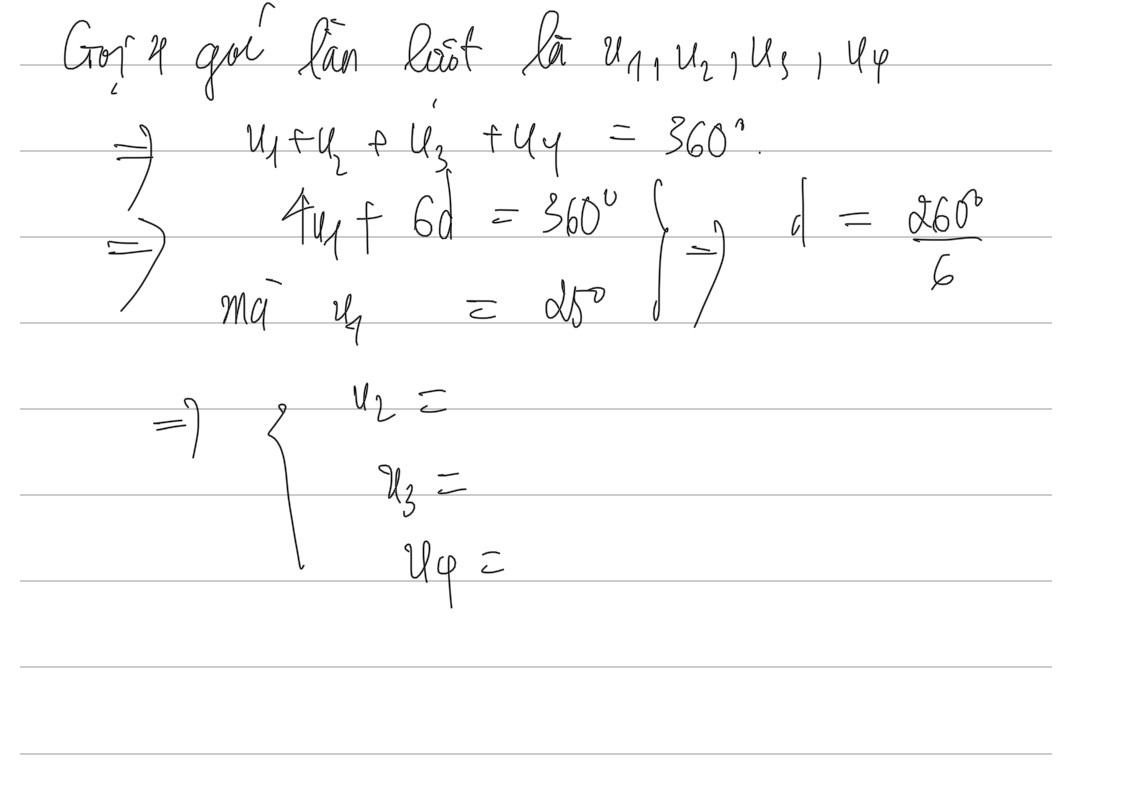 Gọi 4 góc lần lượt là u₁, u₂, u₃, u₄
=> u₁ + u₂ + u₃ + u₄ = 360°.
=> 4u₁ + 6d = 360° } => d = 260°/6
mà u₁ = 25°
=> { u₂ =
u₃ =
u₄ =